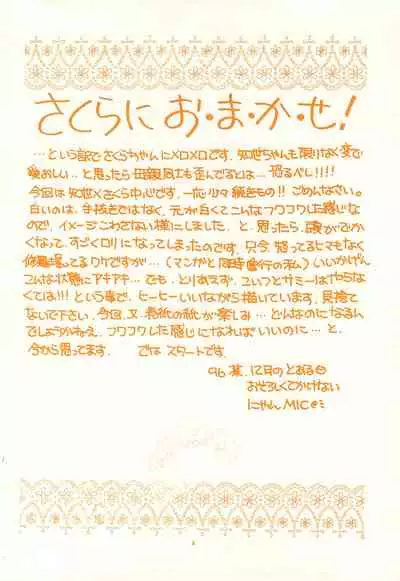 さくらにお・ま・か・せ!
…という訳でさくらちゃんにメロメロです。知世ちゃんも限りなく変で
愛おしい…と思ったら母親同士も歪んでるとは… 恐るべし!!!!
今回は知世×さくら中心です。一応少々続きもの!! ごめんなさい。
白いのは、手抜きではなく、元が白くてこんなフワフワした感じな
ので、イメージこわさない様にしました、と、思ったら、頭がでかで
かくなって、すごくロリになってしまったのです。只今 怒ってるヒマもなく
修羅場ってるワケですが…(マンガと同時進行の私)いいかげん
こんな状態にアキアキ…でも、とりあえず、コイツとサミーはやらなく
ては!!!という事で、ヒーヒーいいながら描いています。見捨て
ないで下さい、今回、又、表紙の紙が楽しみ…どんなのになるん
でしょうかねえ、フワフワした感じになればいいのに…と、
今から思ってます。 では スタートです。
96 12月のとある日
おそろしくてかけない
にゃん MIC